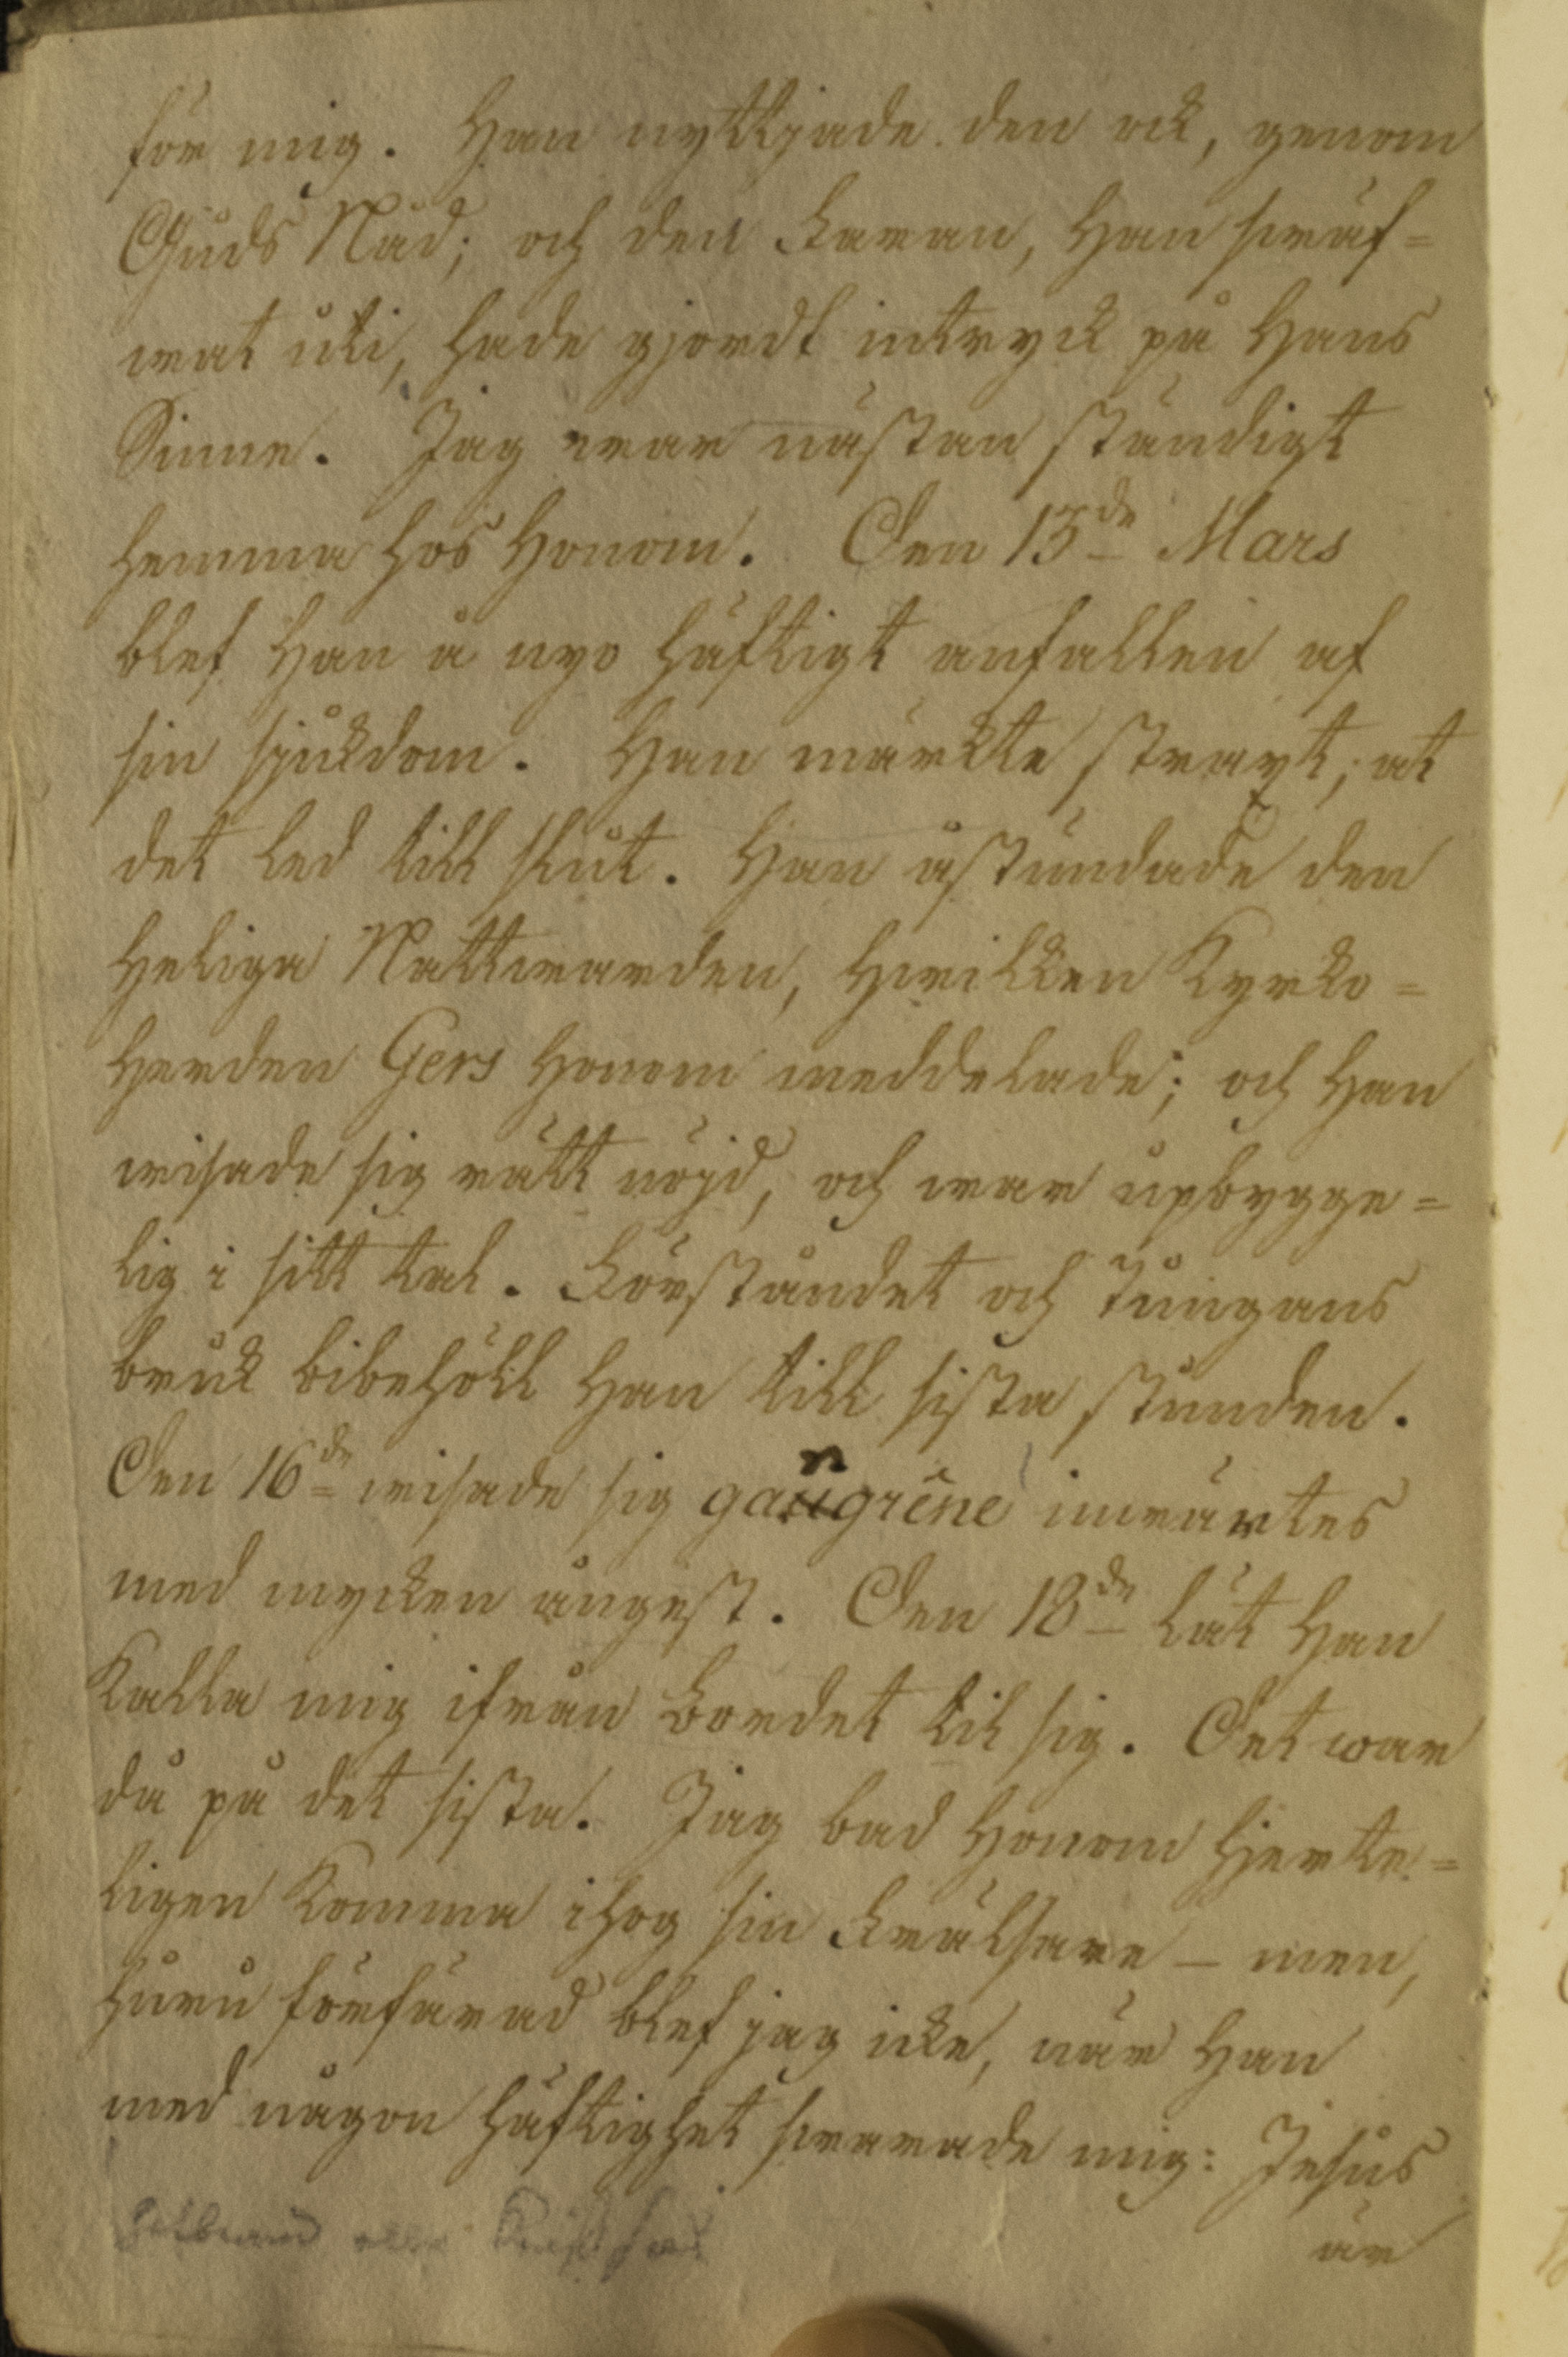 för mig. Han nyttjade den ock, genom
Guds Nåd; och den Faran, Han swäf=
wat uti, hade gjordt intryck på Hans
Sinne. Jag war nästan ständigt
hemma hos Honom. Den 15de Mars
blef Han å nyo häftigt anfallen af
sin sjukdom. Han märkte straxt, at
det led till slut. Han åstundade den
Heliga Nattwarden, Hwilken Kyrko=
Herden Gers Honom meddelade; och Han
wisade sig rätt nöjd, och war upbygge=
lig i sitt tal. Förståndet och Tungans
bruk bibehöll Han till sista stunden.
Den 16de wisade sig gangrene inwärtes
med mycken ångest. Den 18de lät Han
Kalla mig ifrån Bordet til sig. Det war
då på det sista. Jag bad Honom Hjerte=
ligen Komma ihog sin Frälsare – men,
huru förfärad blef jag icke, när Han
med någon häftighet swarade mig: Jesus
är